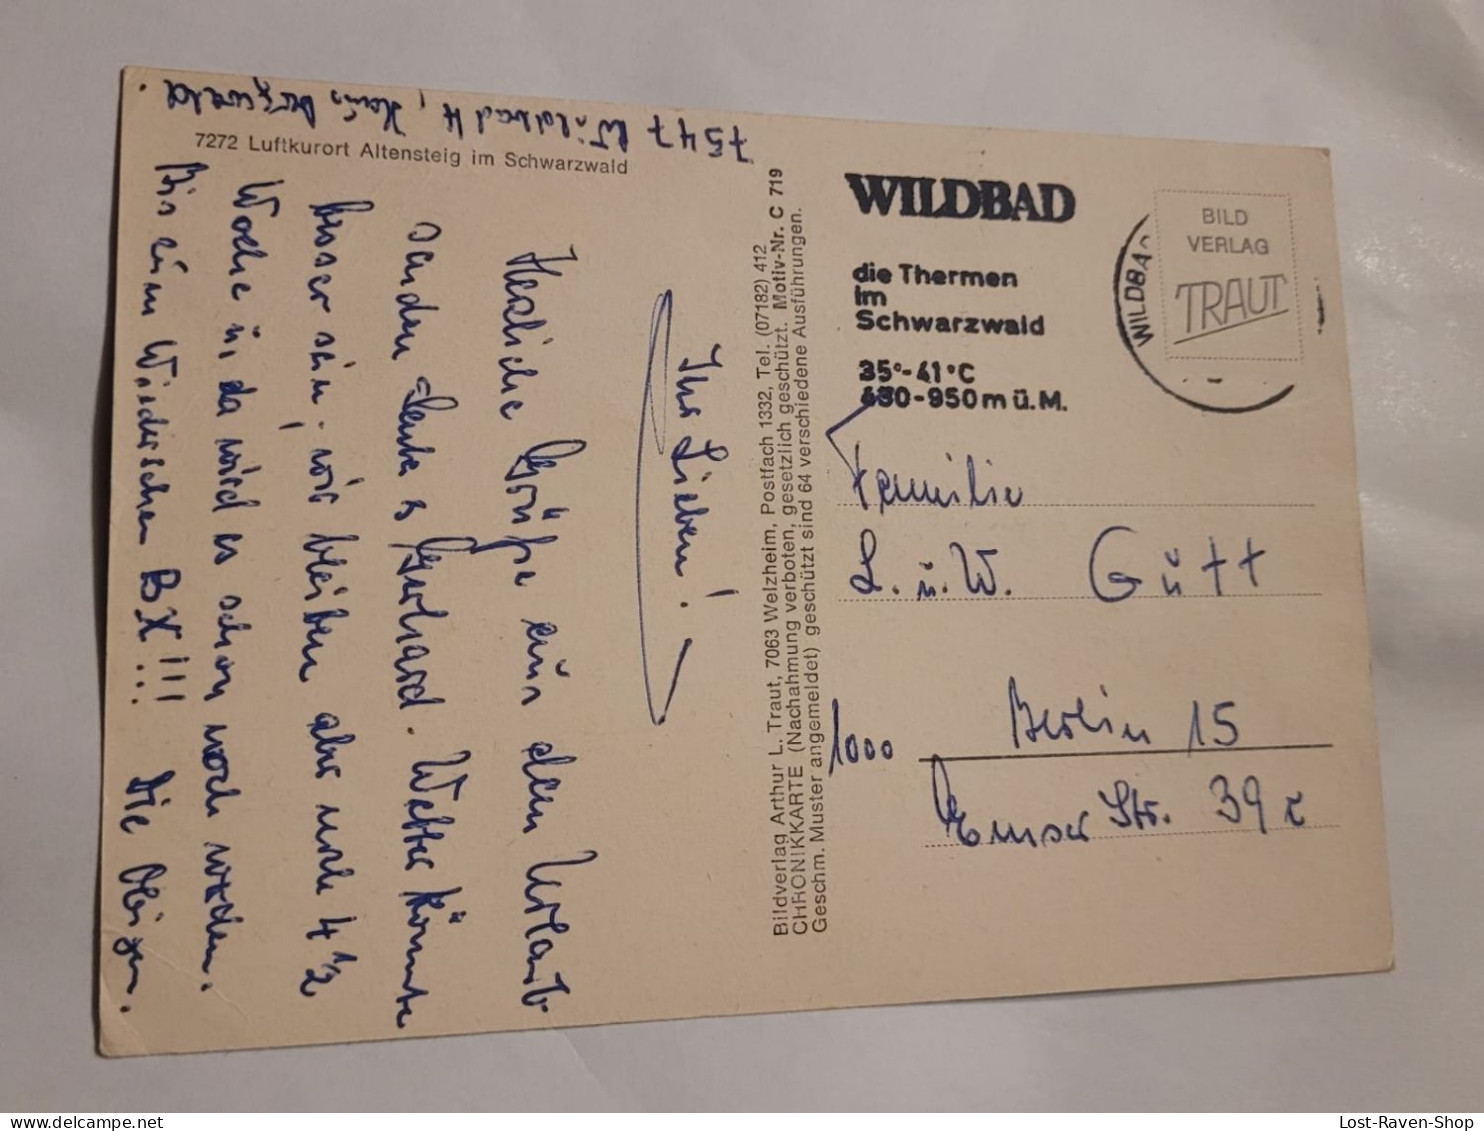 7547 Wildbad 4, Haus Bergwald.
7272 Luftkurort Altensteig im Schwarzwald
Ihr Lieben!
Herzliche Grüße aus dem Urlaub
senden Gerhard. Wetter könnte
besser sein, wir bleiben aber noch 4 1/2
Woche u. da wird es schon noch werden.
Bis zum Wiedersehen BX!!! Die Obigen.
Bildverlag Arthur L. Traut, 7063 Welzheim, Postfach 1332, Tel. (07182) 412
CHRONIKKARTE (Nachahmung verboten, gesetzlich geschützt. Motiv-Nr. C 719
Geschm. Muster angemeldet) geschützt sind 64 verschiedene Ausführungen.
WILDBAD
die Thermen
im
Schwarzwald
35°-41°C
430-950m ü.M.
WILDBAD
BILD
VERLAG
TRAUT
Familie
L. u. W. Gütt
1000 Berlin 15
Emser Str. 39 c
Lost-Raven-Shop